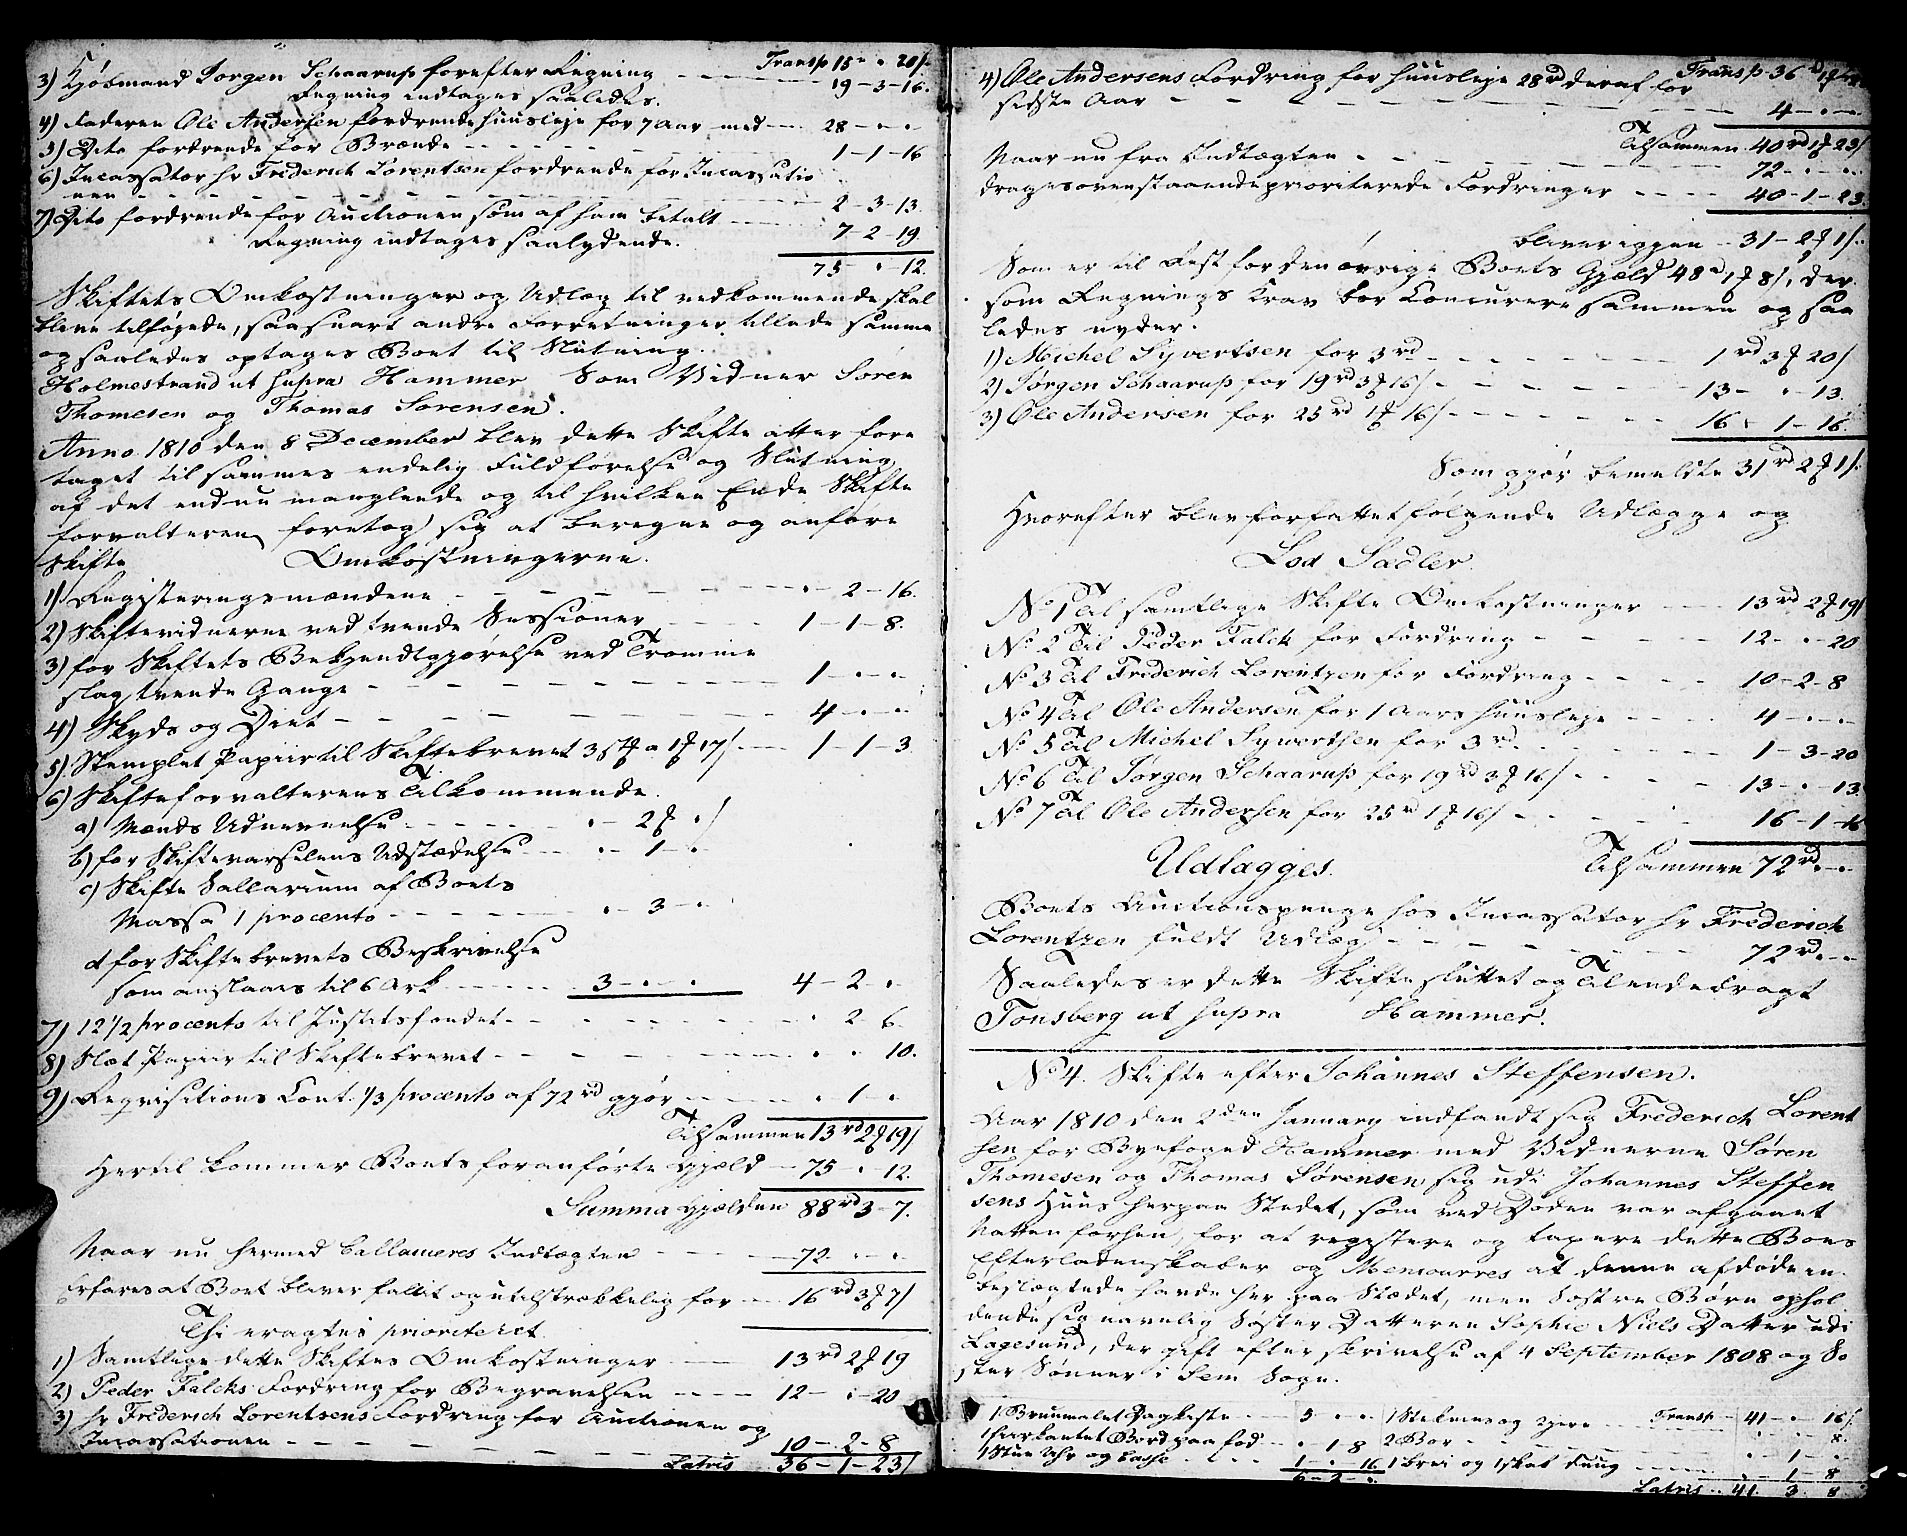 Transp 15 " " 20ß.
3) Kjöbmand Jorgen Schaarup forefter Regning - - - - 19 - 3 - 16.
Regning indtages saaledes.
4) Faderen Ole Andersen fordrende huusleje for 7 Aar med - - 28 - " "
5) Dito fordrende for Brænde - - - - - - 1 - 1 - 16
6) Incassator hr Frederich Lorentsen fordrende for Incassatio
nen - - - - - - - - - 2 - 3 - 13.
7) Dito fordrende for Auctionen som af ham betalt - - - 7 - 2 - 19.
Regning indtages saalydende.
75 - " - 12.
Skiftets Omkostninger og Udlæg til vedkommende skal
blive tilföyede, saasnart andre Forretninger tillade samme
og saaledes optages Boet til Slutning.
Holmestrand ut supra Hammer Som Vidner Sören
Thomesen og Thomas Sorensen.
Anno 1810 den 8 December blev dette Skifte atter fore
taget til sammes endelig Fuldförelse og Slutning
af det endnu manglende og til hvilken Ende Skifte
forvalteren foretog sig at beregne og anföre
Skifte Omkostningerne.
1) Registeringsmændene - - - - - - " - 2 - 16.
2) Skiftevidnerne ved tvende Sessioner - - - 1 - 1 - 8.
3) for Skiftets Bekjendtgjörelse ved Tromme
slag tvende Gange - - - - - - - - 1 - " - "
4) Skyds og Diet - - - - - - - - 4 - " - "
5) Stemplet Papiir til Skiftebrevet 3 a 1 17ß - - 1 - 1 - 3.
6) Skifteforvalterens Tilkommende.
a) Mænds Udnevnelse - - - - - " - 2 "
b) for Skiftevarselens Udstædelse - - " - 1 - "
c) Skifte Sallarium af Boets
Massa 1 procento - - - - - - " - 3 - "
d for Skiftebrevets Beskrivelse
som anslaaes til 6 Ark - - - - 3 - " - " 4 - 2 - "
7) 12 1/2 procento til Justitsfondet - - - - - - " 2 - 6.
8) Slet Papiir til Skiftebrevet - - - - - - " " 10.
9) Reqvisitions Cont. 1/3 procento af 72rd gjör - - - " 1 - "
Tilsammen 13rd 2 19ß
Hertil kommer Boets foranförte Gjæld - 75 - " 12.
Summa Gjælden 88rd 3 - 7.
Naar nu hermed ballanceres Indtægten - - - 72 - " - "
Erfares at Boet bliver fallit og utilstrækkelig for - 16rd 3 7ß
Thi eragtes prioriteret
1) Samtlige dette Skiftes Omkostninger - - 13rd 2 19
2) Peder Falcks Fordring for Begravelsen - - - 12 - " - 20
3) hr Frederich Lorentsens Fordring for Auctionen og
Incassationen - - - - - - - - 10 - 2 - 8
Latris 36 - 1 - 23ß
Transp 36
4) Ole Andersens Fordring for huusleje 28rd deraf for
sidste Aar - - - - - - - - - 4 - " - "
Tilsammen 40rd 1 23ß
Naar nu fra Indtægten - - - - - - 72 - " - "
drages ovenstaaende prioriterede Fordringer - - - 40 - 1 - 23.
bliver iggen - 31 - 2 1ß.
Som er til Rest for den övrige Boets Gjæld 48 1 8ß, der
som Regnings Krav bör Concurere sammen og saa
ledes nyder.
1) Michel Syvertsen for 3rd - - - - - - 1rd 3 20ß
2) Jörgen Schaarup for 19rd 3 16ß - - - - - 13 - " - 13.
3) Ole Andersen for 25rd 1 16ß - - - - - 16 - 1 - 16.
Som gjör bemeldte 31rd 2 1ß.
Hvorefter blev forfattet fölgende Udlægge og
Lod Sædler.
No 1 Til samtlige Skifte Omkostninger - - 13rd 2 19ß
No 2 Til Peder Falck for Fordring - - - - 12 - " - 20
No 3 Til Frederich Lorentzen for Fordring - - - 10 - 2 - 8
No 4 Til Ole Andersen for 1 Aars huusleje - - - 4 - " - "
No 5 Til Michel Sywertsen for 3rd. - - - - - - 1 - 3 - 20
No 6 Til Jörgen Schaarup for 19rd 3 16ß - - - - 13 - " - 13.
No 7 Til Ole Andersen for 25rd 1 16ß - - - - 16 - 1 - 16
Udlagges. Tilsammen 72rd - " - "
Boets Auctionspenge hos Incassator hr Frederich
Lorentzen fuldt Udlæg - - - - - - - 72rd - " - "
Saaledes er dette Skifte sluttet og Tilendebragt
Tonsberg ut supra Hammer.
No 4. Skifte efter Johannes Steffensen.
Aar 1810 den 2den January indfandt sig Frederich Lorent
sen for Byefoged Hammer med Vidnerne Sören
Thomesen og Thomas Sörensen, sig udi Johannes Steffen
sens Huus herpaa Stedet, som ved Döden var afgaaet
Natten forhen, for at registere og taxere dette Boes
Efterladenskaber og at denne afdöde in
beslægtede havde her paa Stædet, men Söstre Börn ophol
dende sig navnlig Söster Datteren Sophie Niels Datter udi
Lagesund, der gift efter skrivelse af 4 September 1808 og Sö
ster Sönner i Sem Sogn.
1 Bruunmalet Dragkiste - - 5 " " 1 og Transp - 41 - " - 16ß
1 fiirkantet Bord paa fod - - " 1 8 2 - - - - 8.
1 Stue Uhr og Casse - - - 1 - " 16 1 og 1 - - - 1 - 8
6 - 2 - " Latris - 41. 3. 8